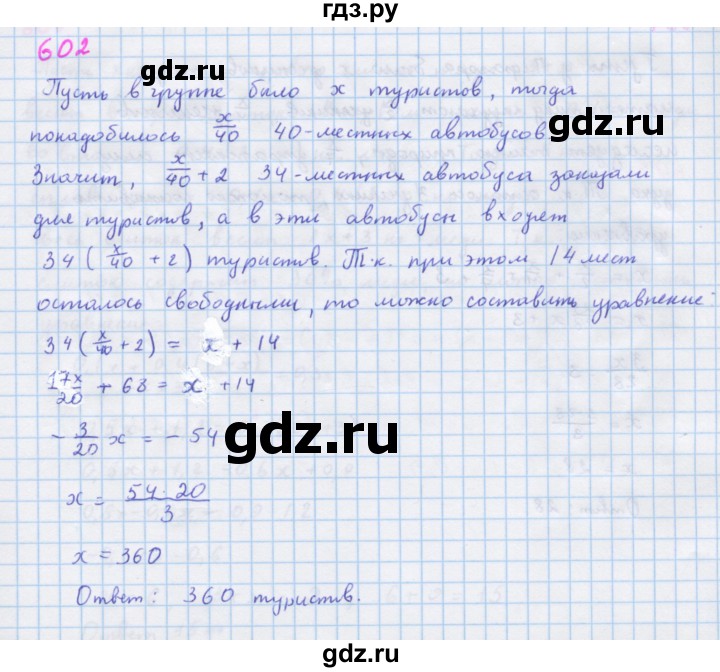 гдз.ру
602
Пусть в группе было x туристов, тогда
понадобилось x/40 40-местных автобусов
Значит, x/40 + 2 34-местных автобуса заказали
для туристов, а в эти автобусы входят
34 (x/40 + 2) туристов. Т.к. при этом 14 мест
осталось свободными, то можно составить уравнение:
34 (x/40 + 2) = x + 14
17x/20 + 68 = x + 14
- 3/20 x = - 54
gdz.ru
x = 54·20/3
x = 360
Ответ: 360 туристов.
gdz.ru